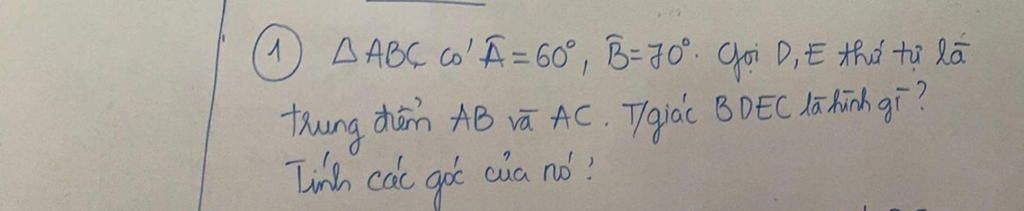 ① △ABC có Â = 60°, B̂ = 70°. Gọi D, E thứ tự là
trung điểm AB và AC. T/giác BDEC là hình gì?
Tính các góc của nó?